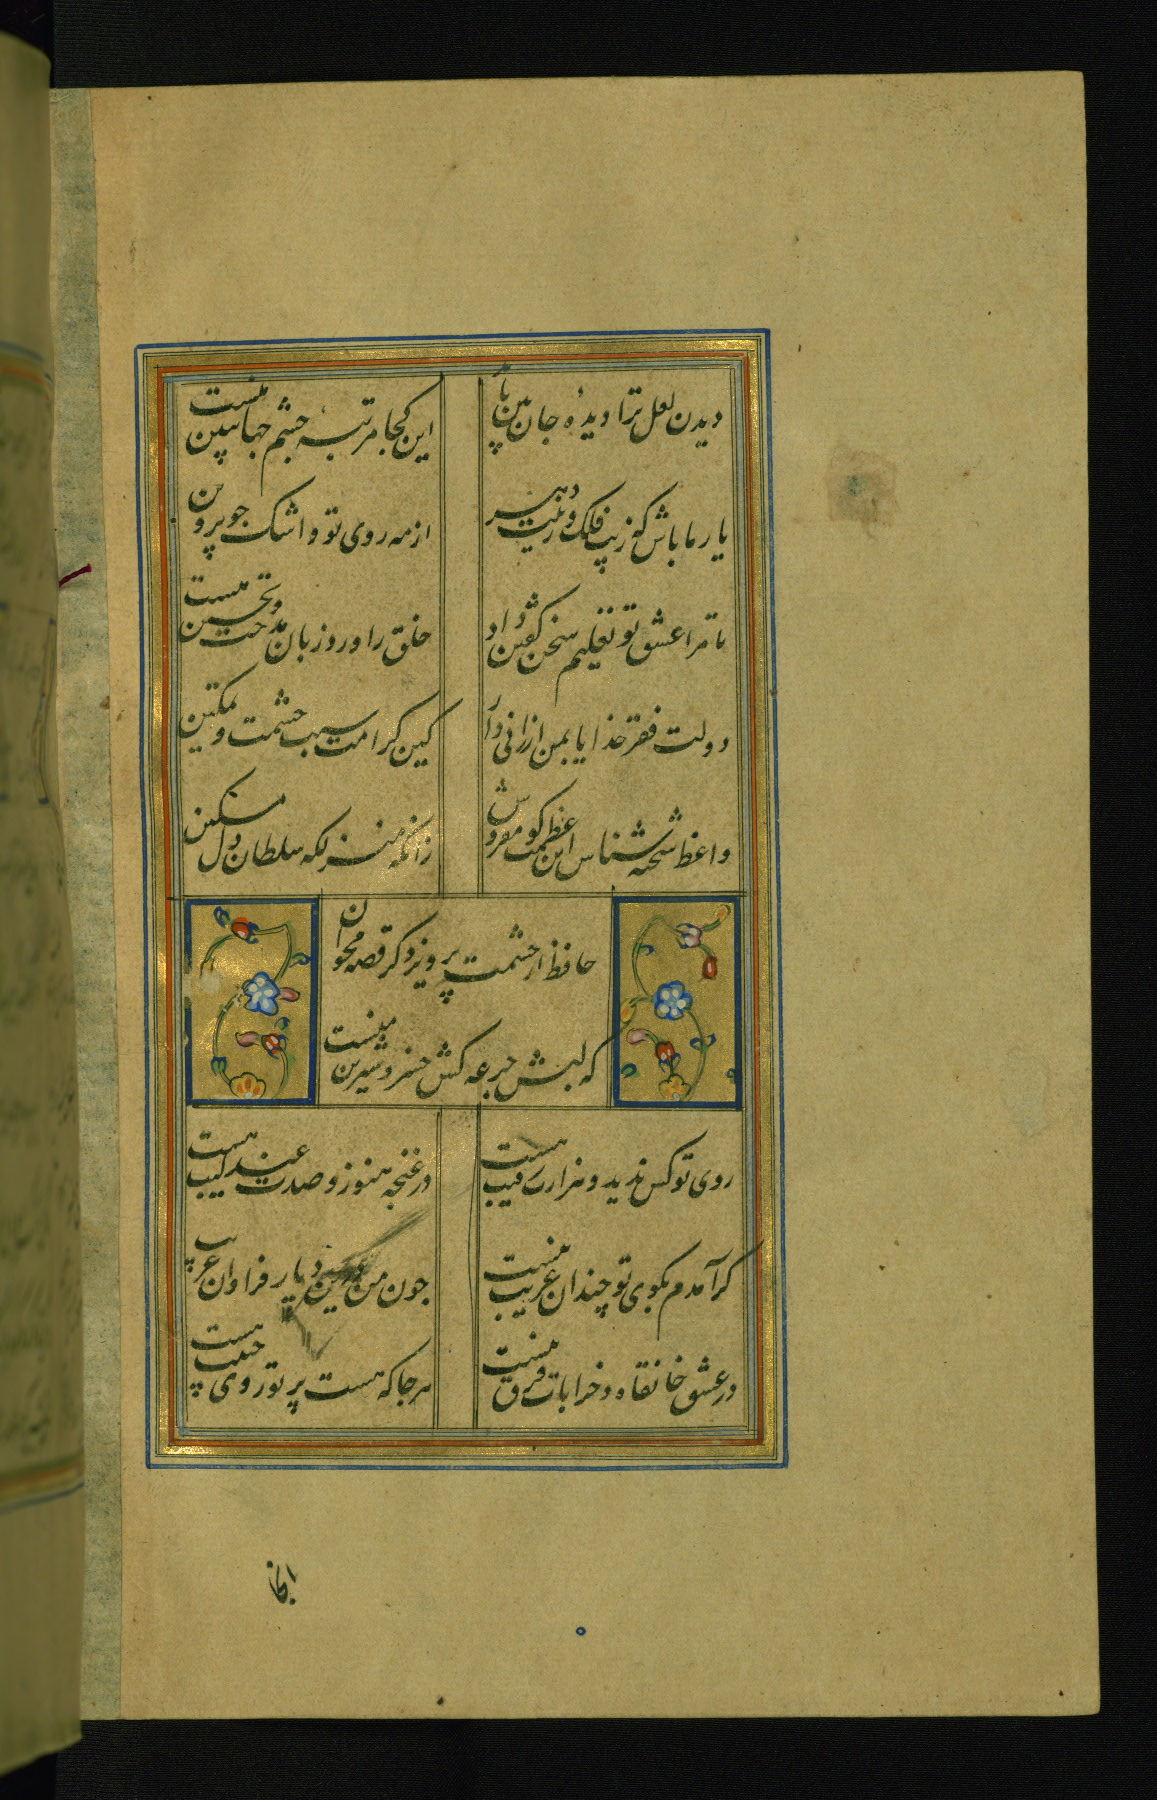 دیدن لعل ترا دیدهٔ جان بین باید
این کجا مرتبهٔ چشم جهان بین منست
یار ما باش که زیب فلک و زینت دهر
از مه روی تو و اشک چو پروین
تا مرا عشق تو تعلیم سخن گفتن داد
خلق را ورد زبان مدحت و تحسین منست
دولت فقر خدایا بمن ارزانی دار
کین کرامت سبب حشمت و تمکین
واعظ شحنه شناس این عظمت کو مفروش
زانکه منزلکه سلطان دل مسکین
حافظ از حشمت پرویز دکر قصه مخوان
که لبش جرعه کش خسرو شیرین منست
روی تو کس ندید و هزارت رقیب هست
در غنچه هنوز و صدت عندلیب هست
کر آمدم بکوی تو چندان غریب نیست
چون من درین دیار فراوان غریب
در عشق خانقاه و خرابات فرق نیست
هر جا که هست پرتو روی حبیب هست
آنجا